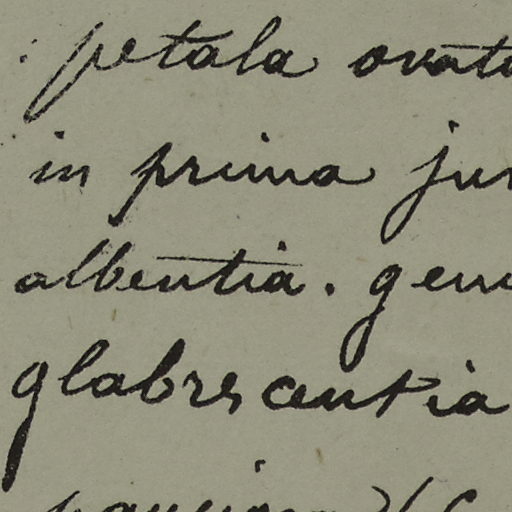 petala ovat
in prima ju
albentia. gem
glabrescentia